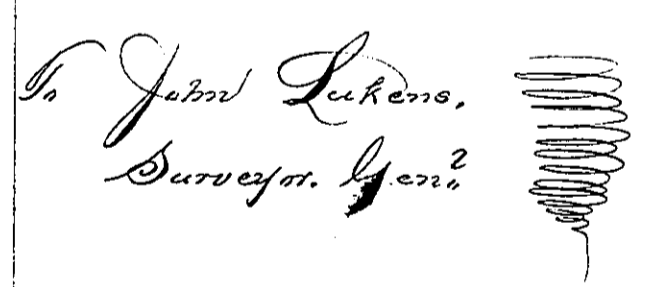 To John Lukens.
Surveyor. Genl.